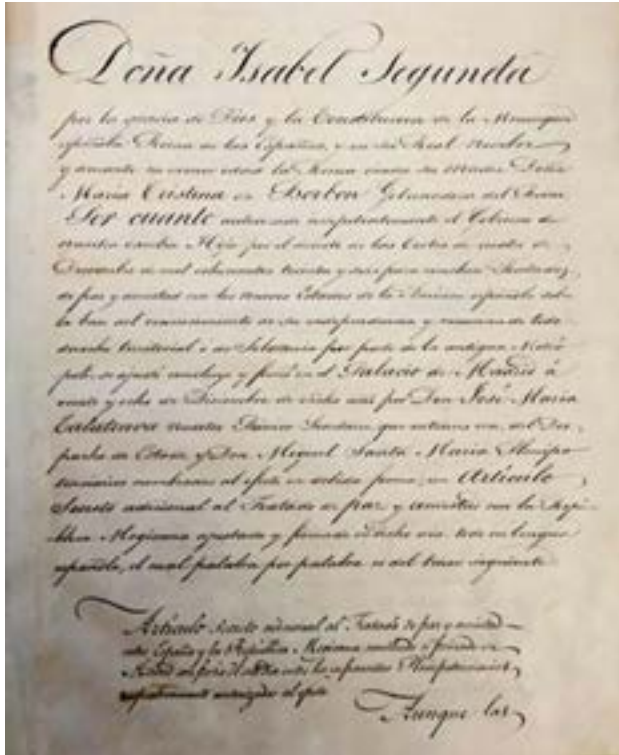 Doña Isabel Segunda
por la gracia de Dios y la Constitucion de la Monarquia
española Reina de las Españas, y en su Real nombre
y durante su menor edad la Reina viuda su Madre Doña
Maria Cristina de Borbon Gobernadora del Reino
Por cuanto autorizado competentemente el Gobierno de
nuestra escelsa Hija por el decreto de las Cortes de cuatro de
Diciembre de mil ochocientos treinta y seis para concluir Tratados
de paz y amistad con los nuevos Estados de la America española sobre
la base del reconocimiento de su independencia y renuncia de todo
derecho territorial o de Soberania por parte de la antigua Metró
poli, se ajustó concluyó y firmó en el Palacio de Madrid á
veinte y ocho de Diciembre de dicho año por Don José Maria
Calatrava nuestro Primer Secretario que entonces era del Des
pacho de Estado y Don Miguel Santa Maria Plenipo
tenciarios nombrados al efecto en debida forma, un Artículo
Secreto adicional al Tratado de paz y amistad con la Repú
blica Megicana ajustado y firmado el dicho dia todo en lengua
española, el cual palabra por palabra es del tenor siguiente
Artículo secreto adicional al Tratado de paz y amistad
entre España y la República Mexicana
entre los infrascritos Plenipotenciarios
autorizados al efecto
Aunque las